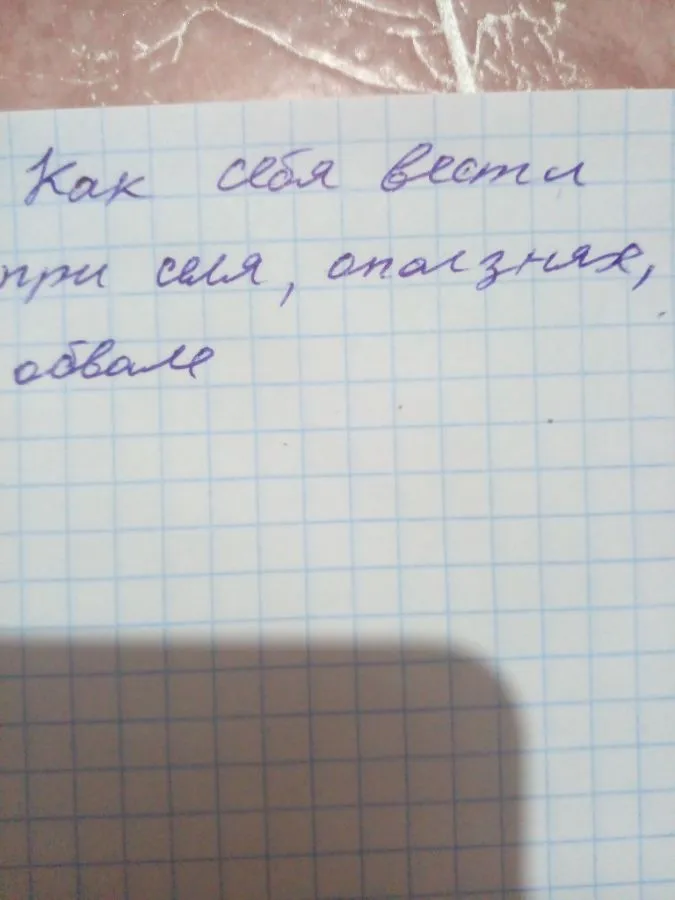 Как себя вести
при селя, оползнях,
обвале